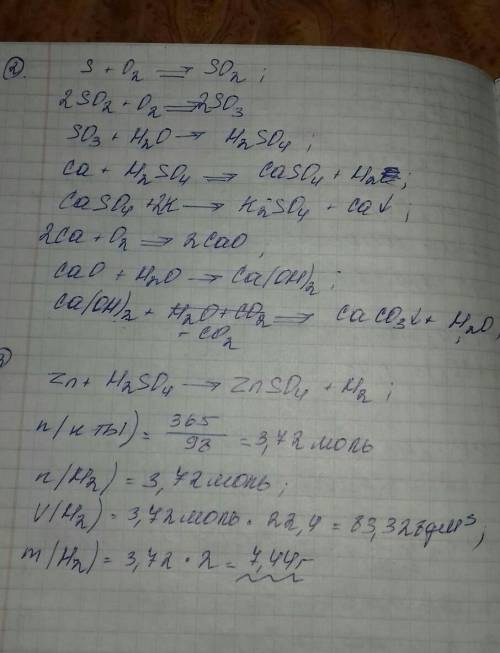 2. S + O2 ⇒ SO2 ;
2SO2 + O2 ⇒ 2SO3
SO3 + H2O → H2SO4 ;
Ca + H2SO4 ⇒ CaSO4 + H2 ;
CaSO4 + 2K → K2SO4 + Ca↓ ;
2Ca + O2 ⇒ 2CaO ;
CaO + H2O → Ca(OH)2 ;
Ca(OH)2 + H2O + CO2 ⇒ CaCO3↓ + H2O ;
- CO2
3
Zn + H2SO4 → ZnSO4 + H2 ;
n(к-ты) = 365/98 = 3,72 моль
n(H2) = 3,72 моль ;
V(H2) = 3,72 моль · 22,4 = 83,328 дм3 ;
m(H2) = 3,72 · 2 = 7,44 г